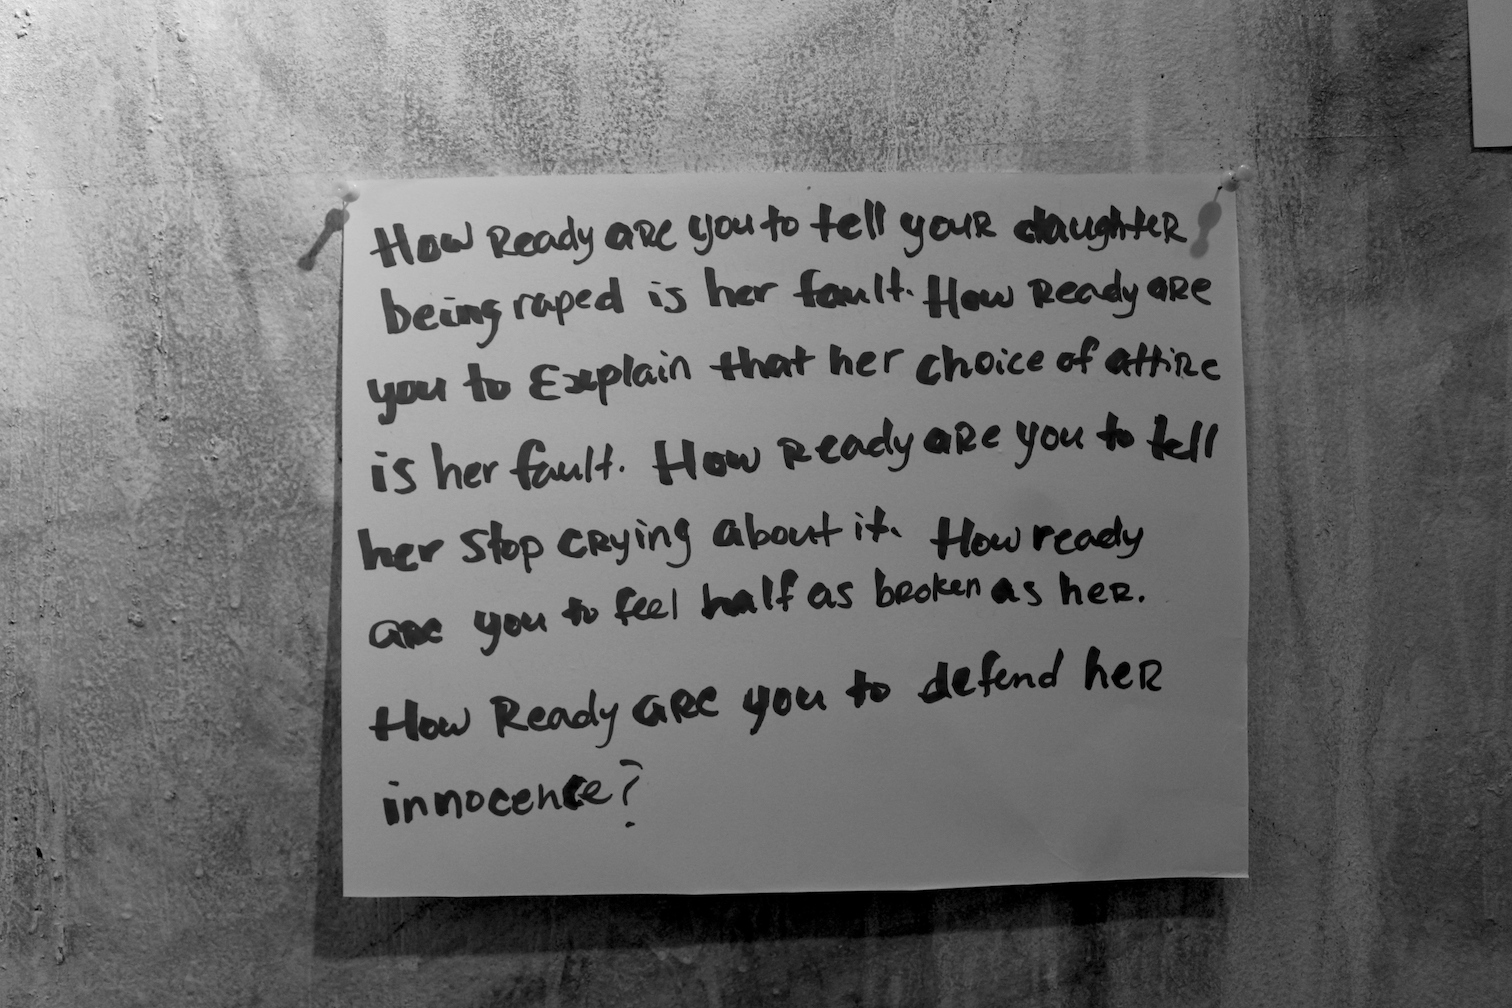 How Ready are you to tell your daughter
being raped is her fault. How Ready are
you to Explain that her choice of attire
is her fault. How Ready are you to tell
her stop crying about it. How ready
are you to feel half as broken as her.
How Ready are you to defend her
innocence?